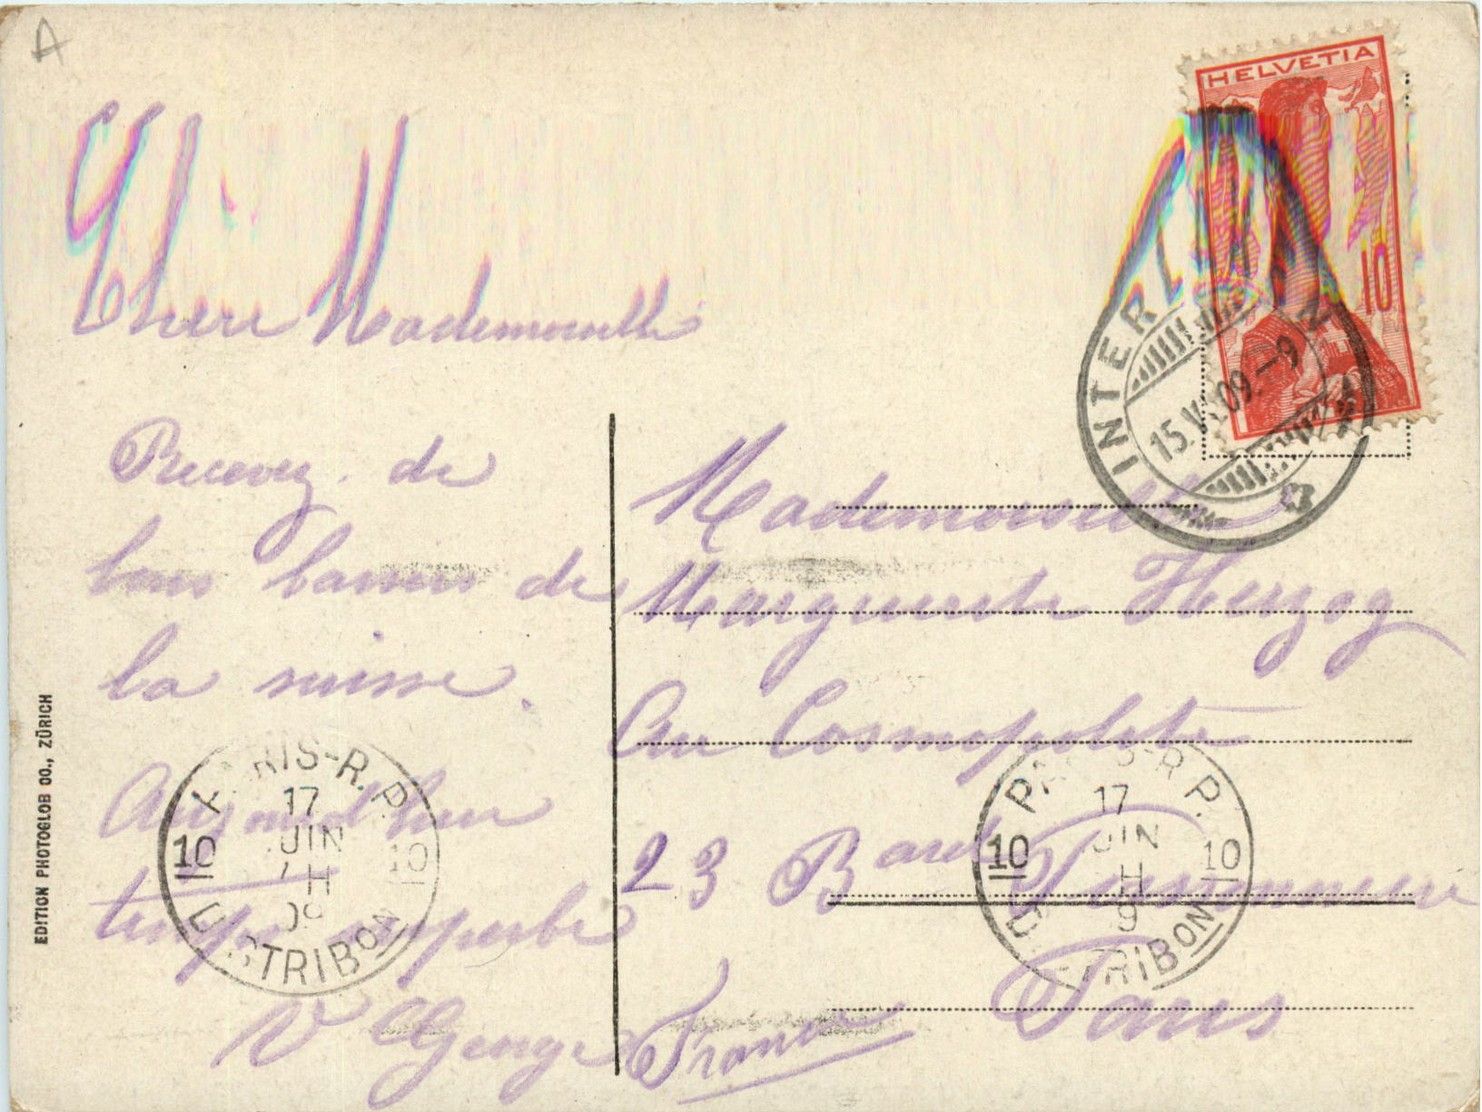 A
HELVETIA
10
INTERLAKEN
15.VI.09.-9
Chère Mademoiselle
Recevez de
bons baisers de
la suisse.
Aujourd'hui
temps superbe
V George
Mademoiselle
Marguerite Herzog
Au Cosmopolite
23 Bard Poissonnière
Paris
France
PARIS-R.P.
10 17 10
JUIN
7 H
09
DISTRIBON
PARIS-R.P.
10 17 10
JUIN
H
9
DISTRIBON
EDITION PHOTOGLOB CO., ZÜRICH